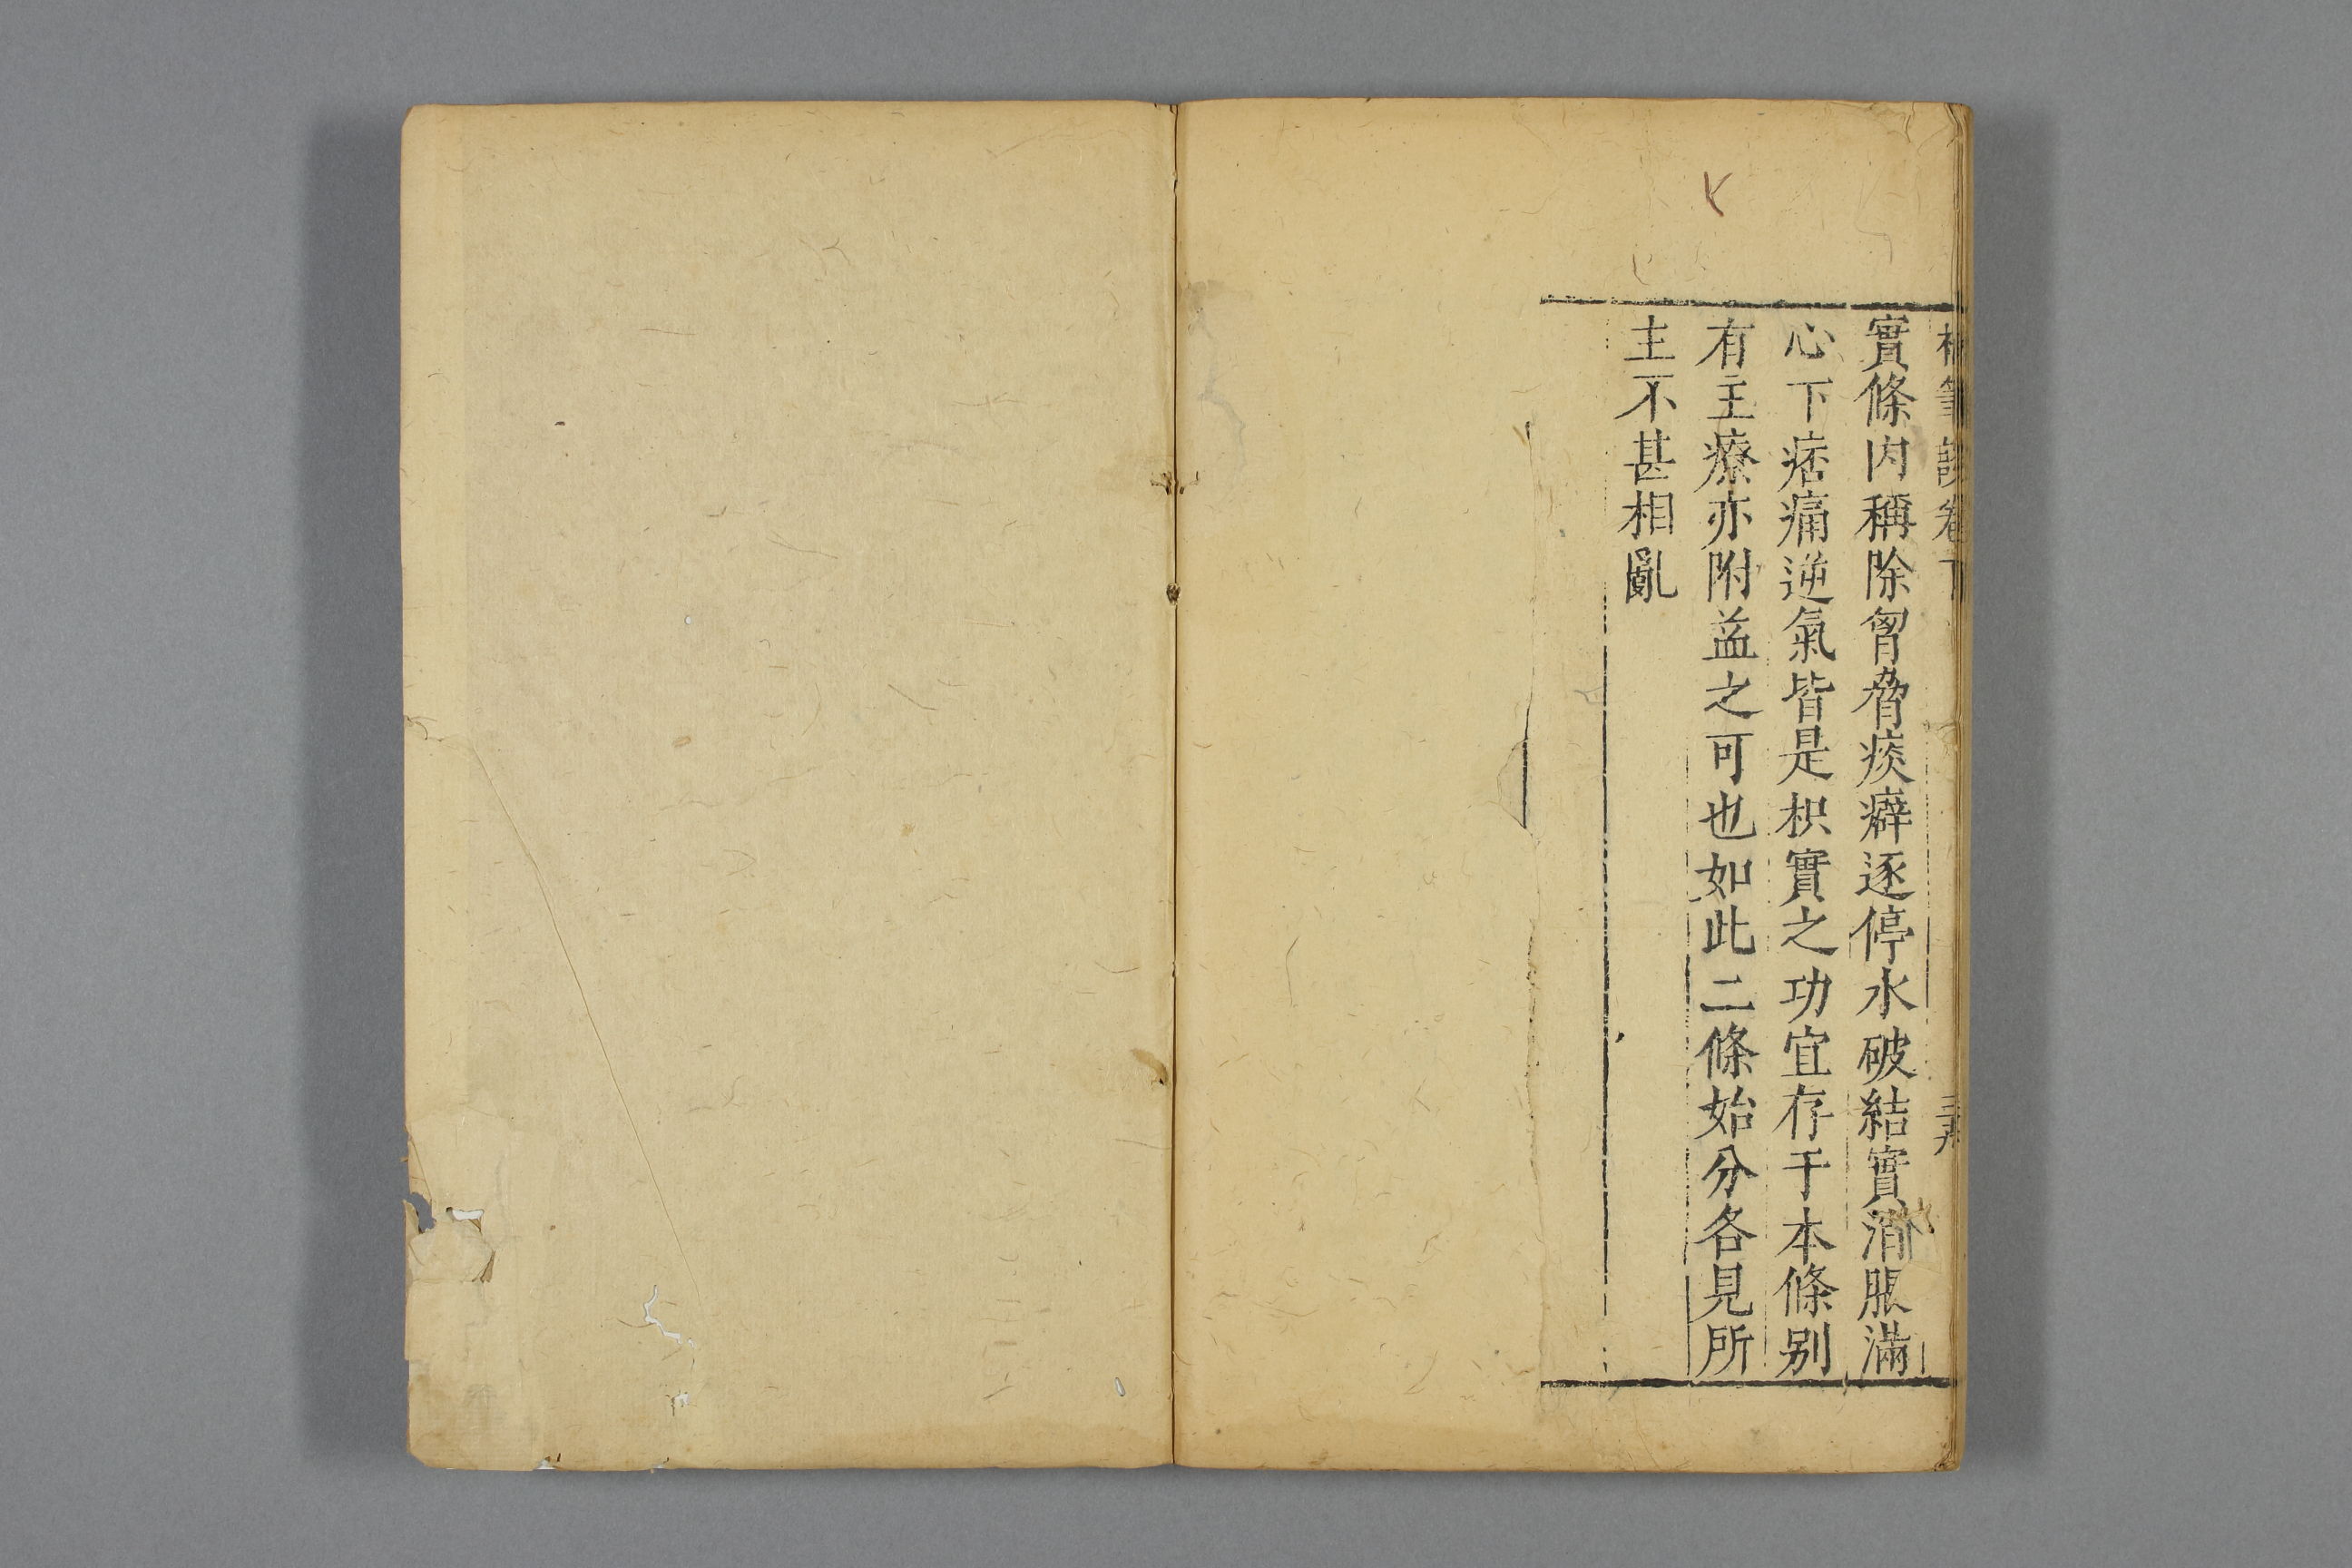 筆談卷下
實條内稱除胷脅痰癖逐停水破結實消脹滿
心下痞痛逆氣皆是枳實之功宜存于本條别
有主療亦附益之可也如此二條始分各見所
主不甚相亂